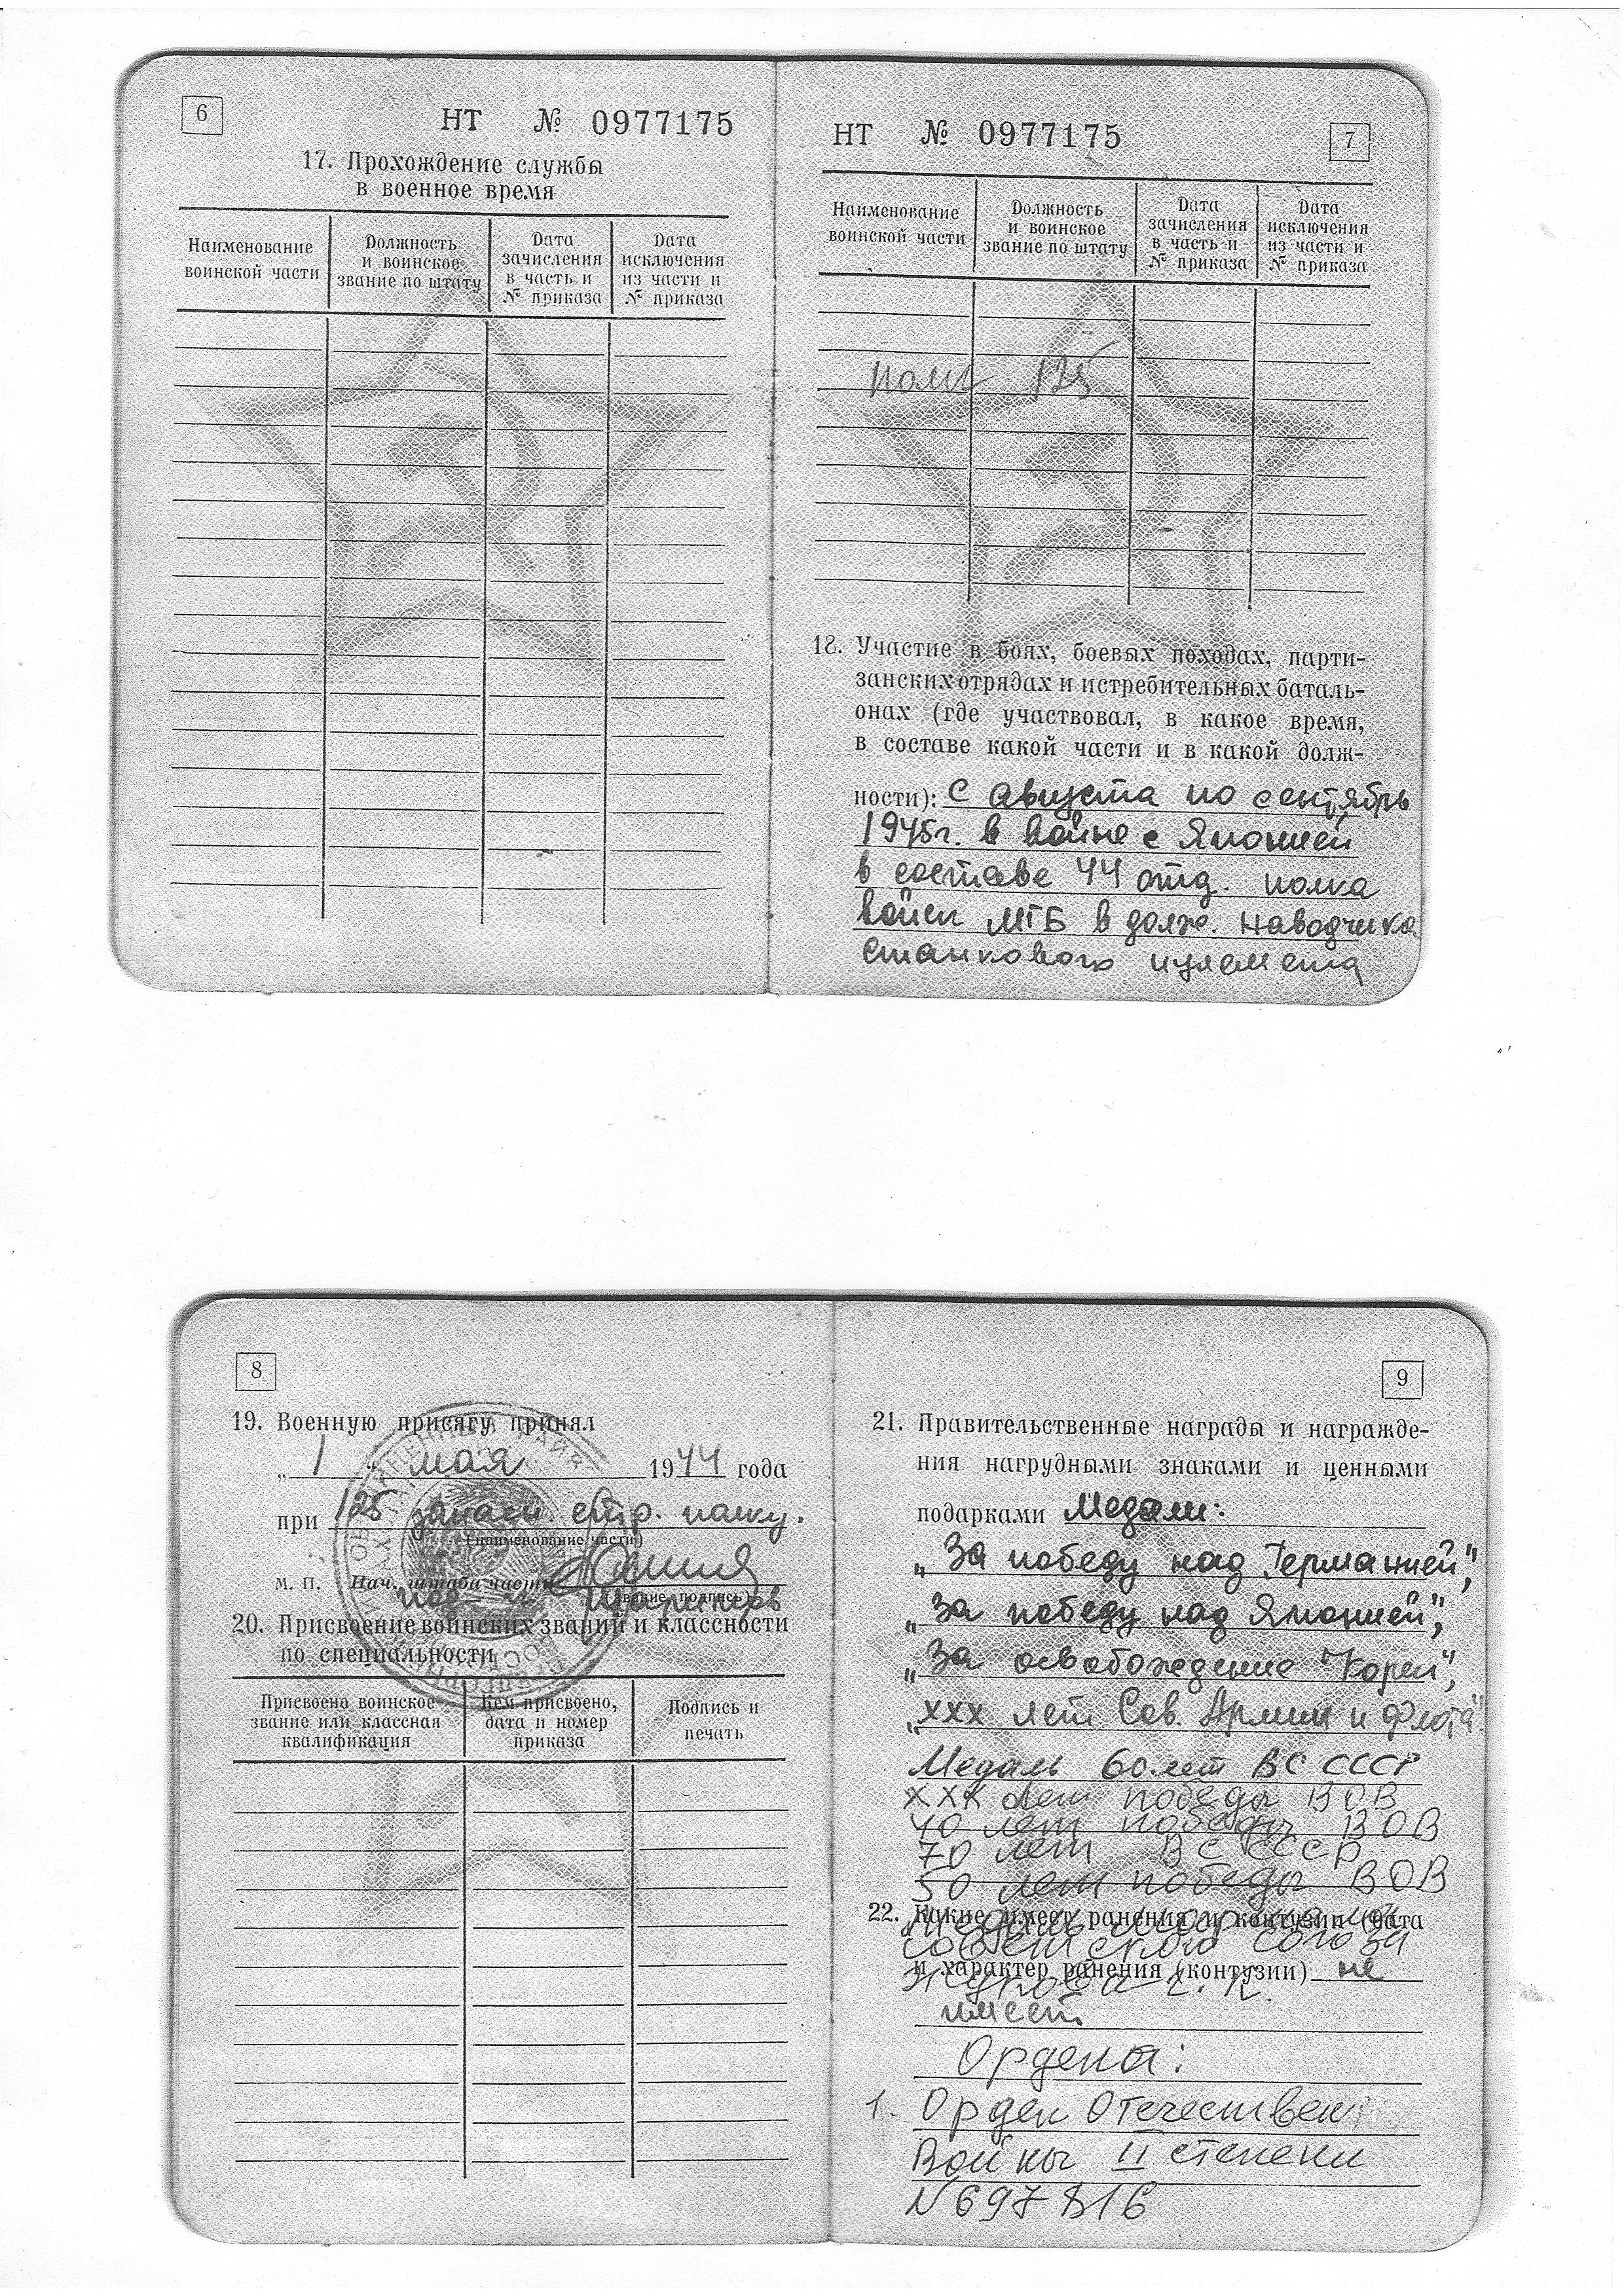 6
НТ № 0977175
17. Прохождение службы
в военное время
Наименование
воинской части
Должность
и воинское
звание по штату
Дата
зачисления
в часть и
№ приказа
Дата
исключения
из части и
№ приказа
НТ № 0977175
7
Наименование
воинской части
Должность
и воинское
звание по штату
Дата
зачисления
в часть и
№ приказа
Дата
исключения
из части и
№ приказа
125
18. Участие в боях, боевых походах, парти-
занских отрядах и истребительных баталь-
онах (где участвовал, в какое время,
в составе какой части и в какой долж-
ности): с августа по сентябрь
1945г. в войне с Японией
в составе 44 отд. полка
войск МГБ в долж. наводчика
станкового пулемета
8
19. Военную присягу принял
„ 1 " мая 1944 года
при 125 запасн. стр. полку.
(наименование части)
М. П. Нач. штаба части
(звание, подпись)
20. Присвоение воинских званий и классности
по специальности
Присвоено воинское
звание или классная
квалификация
Кем присвоено,
дата и номер
приказа
Подпись и
печать
9
21. Правительственные награды и награжде-
ния нагрудными знаками и ценными
подарками Медали:
„За победу над Германией",
„За победу над Японией",
„За освобождение Кореи",
„XXX лет Сов. Армии и Флота"
Медаль 60 лет ВС СССР
XXX лет победы ВОВ
40 лет победы ВОВ
70 лет ВС СССР
50 лет победы ВОВ
22. Какие имеет ранения и контузии (дата
Советского Союза
и характер ранения (контузии) не
Жукова Г. К.
имеет
Ордена:
1. Орден Отечествен
Войны II степени
N 697816